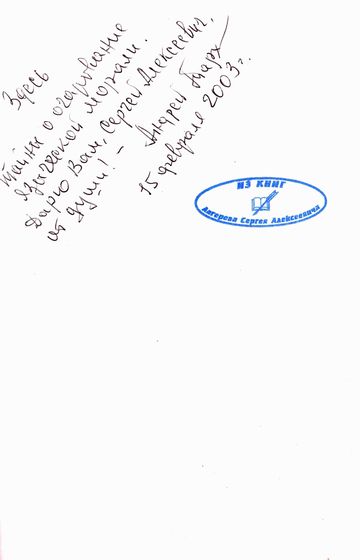 Здесь
тайны о очарование
языческой морали.
Дарю Вам, Сергей Алексеевич,
от души! – Андрей
15 февраля 2003 г.
ИЗ КНИГ
Ангерова Сергея Алексеевича